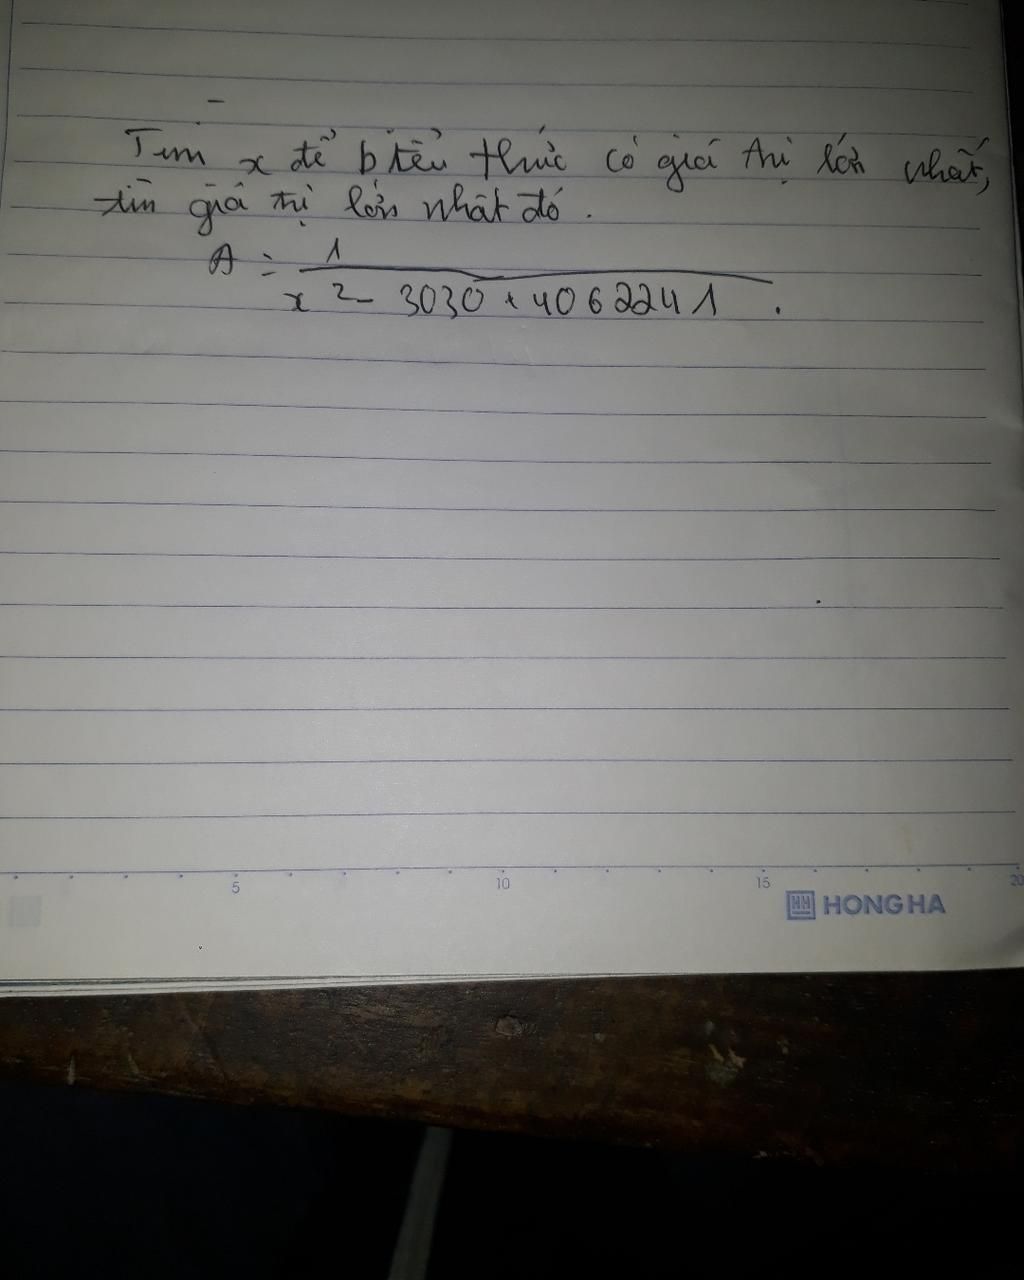 Tìm x để biểu thức có giá trị lớn nhất,
tìm giá trị lớn nhất đó.
A = 1
x² - 3030 + 4062241 .
5 10 15 20
HH HONG HA